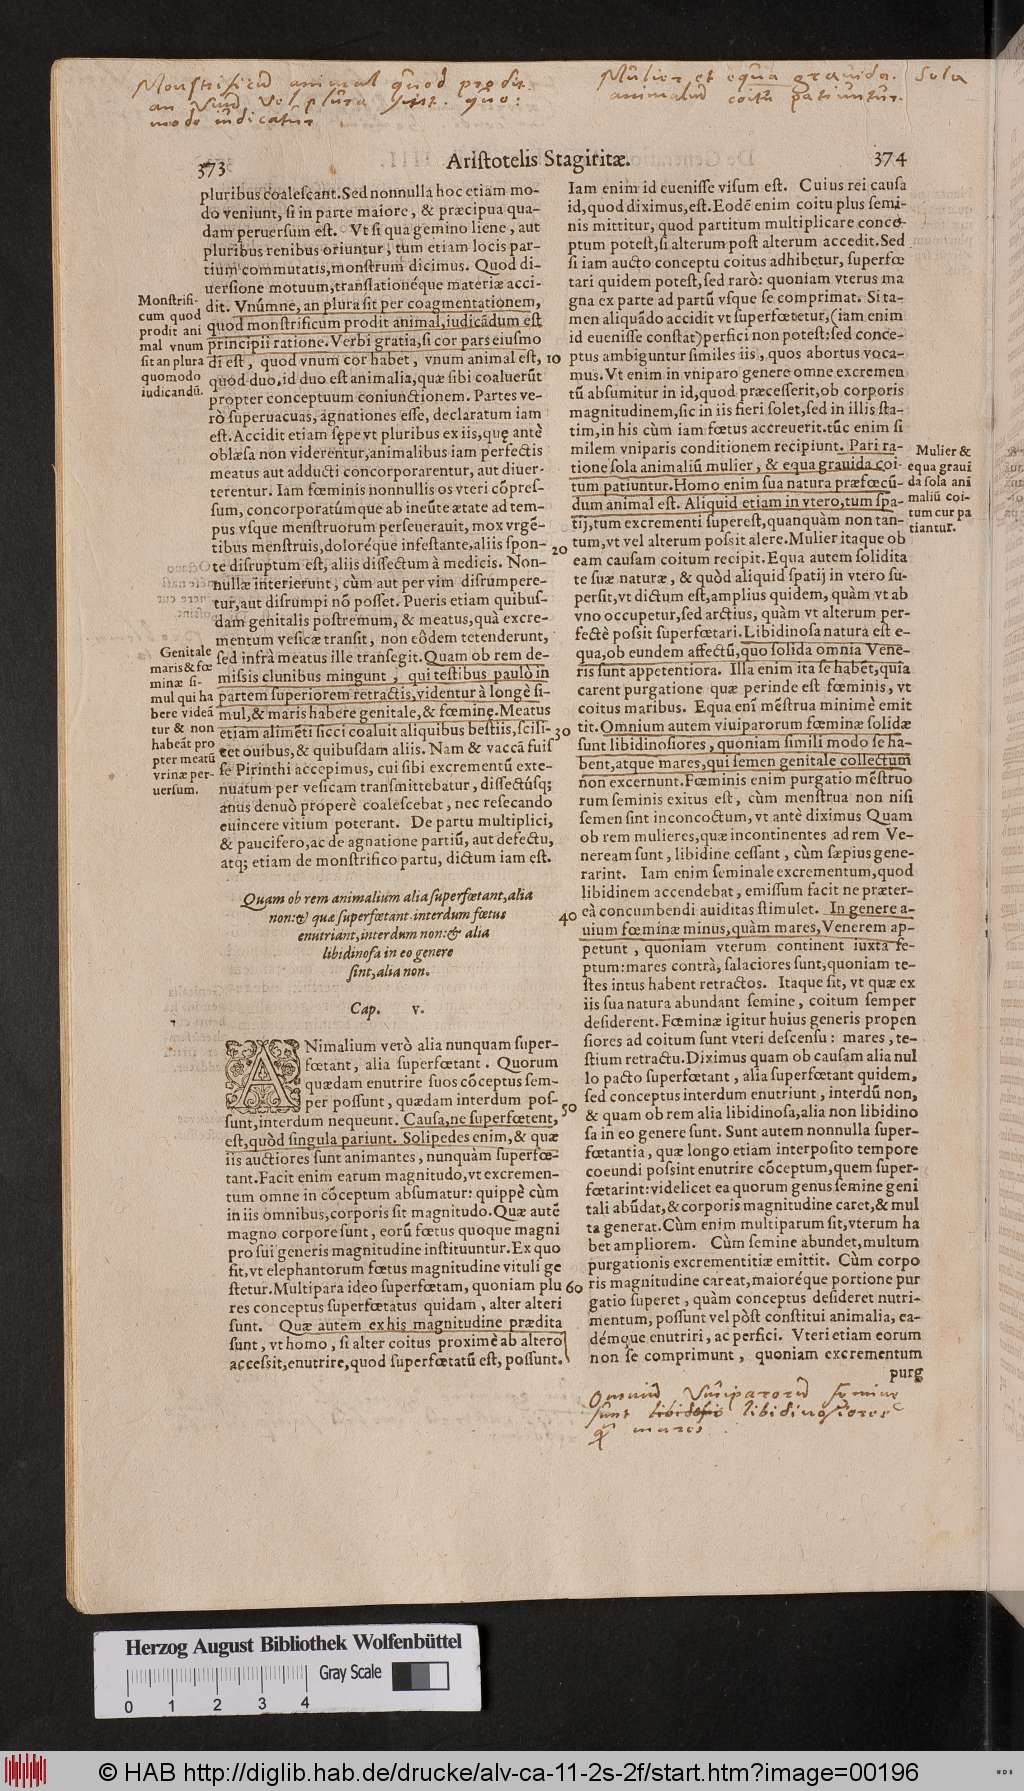 Monstrificũ animal quod prodit
an vnũ vel plura sint. quo:
modo iudicatur
Mulier et equa grauida. sola
animaliũ coitũ patiuntur.
373
Aristotelis Stagiritæ.
374
pluribus coalescant. Sed nonnulla hoc etiam mo-
do veniunt, si in parte maiore, & præcipua qua-
dam peruersum est. Vt si qua gemino liene, aut
pluribus renibus oriuntur, tum etiam locis par-
tium commutatis, monstrum dicimus. Quod di-
uersione motuum, translationéque materiæ acci-
dit. Vnúmne, an plura sit per coagmentationem,
quod monstrificum prodit animal, iudicādum est
principii ratione. Verbi gratia, si cor pars eiusmo
di est, quod vnum cor habet, vnum animal est,
quod duo, id duo est animalia, quæ sibi coaluerūt
propter conceptuum coniunctionem. Partes ve-
rò superuacuas, agnationes esse, declaratum iam
est. Accidit etiam sępe vt pluribus ex iis, quę antè
oblæsa non viderentur, animalibus iam perfectis
meatus aut adducti concorporarentur, aut diuer-
terentur. Iam fœminis nonnullis os vteri cōpres-
sum, concorporatúmque ab ineūte ætate ad tem-
pus vsque menstruorum perseuerauit, mox vrgē-
tibus menstruis, doloréque infestante, aliis spon-
te disruptum est, aliis dissectum à medicis. Non-
nullæ interierunt, cùm aut per vim disrumpere-
tur, aut disrumpi nō posset. Pueris etiam quibus-
dam genitalis postremum, & meatus, quà excre-
mentum vesicæ transit, non eôdem tetenderunt,
sed infrà meatus ille transegit. Quam ob rem de-
missis clunibus mingunt, qui testibus paulò in
partem superiorem retractis, videntur à longè si-
mul, & maris habere genitale, & fœminę. Meatus
etiam alimēti sicci coaluit aliquibus bestiis, scili-
cet ouibus, & quibusdam aliis. Nam & vaccā fuis
se Pirinthi accepimus, cui sibi excrementū exte-
nuatum per vesicam transmittebatur, dissectúsq;
anus denuò properè coalescebat, nec resecando
euincere vitium poterant. De partu multiplici,
& paucifero, ac de agnatione partiū, aut defectu,
atq; etiam de monstrifico partu, dictum iam est.
Monstrifi-
cum quod
prodit ani
mal vnum
sit an plura
quomodo
iudicandū.
Genitale
maris & fœ
minæ si-
mul qui ha
bere videā
tur & non
habeāt pro
pter meatū
vrinæ per-
uersum.
Quam ob rem animalium alia superfœtant, alia
non: & quæ superfœtant interdum fœtus
enutriant, interdum non: & alia
libidinosa in eo genere
sint, alia non.
Cap. V.
ANimalium verò alia nunquam super-
fœtant, alia superfœtant. Quorum
quædam enutrire suos cōceptus sem-
per possunt, quædam interdum pos-
sunt, interdum nequeunt. Causa, ne superfœtent,
est, quòd singula pariunt. Solipedes enim, & quæ
iis auctiores sunt animantes, nunquàm superfœ-
tant. Facit enim earum magnitudo, vt excremen-
tum omne in cōceptum absumatur: quippè cùm
in iis omnibus, corporis sit magnitudo. Quæ autē
magno corpore sunt, eorū fœtus quoque magni
pro sui generis magnitudine instituuntur. Ex quo
fit, vt elephantorum fœtus magnitudine vituli ge
stetur. Multipara ideo superfœtam, quoniam plu
res conceptus superfœtatus quidam, alter alteri
sunt. Quæ autem ex his magnitudine prædita
sunt, vt homo, si alter coitus proximè ab altero
accessit, enutrire, quod superfœtatū est, possunt.
10
20
30
40
50
60
Iam enim id euenisse visum est. Cuius rei causa
id, quod diximus, est. Eodē enim coitu plus semi-
nis mittitur, quod partitum multiplicare conce-
ptum potest, si alterum post alterum accedit. Sed
si iam aucto conceptu coitus adhibetur, superfœ
tari quidem potest, sed rarò: quoniam vterus ma
gna ex parte ad partū vsque se comprimat. Si ta-
men aliquādo accidit vt superfœtetur, (iam enim
id euenisse constat) perfici non potest: sed conce-
ptus ambiguntur similes iis, quos abortus voca-
mus. Vt enim in vniparo genere omne excremen
tū absumitur in id, quod præcesserit, ob corporis
magnitudinem, sic in iis fieri solet, sed in illis sta-
tim, in his cùm iam fœtus accreuerit. tūc enim si
milem vniparis conditionem recipiunt. Pari ra-
tione sola animaliū mulier, & equa grauida coi-
tum patiuntur. Homo enim sua natura præfœcū-
dum animal est. Aliquid etiam in vtero, tum spa-
tij, tum excrementi superest, quanquàm non tan-
tum, vt vel alterum possit alere. Mulier itaque ob
eam causam coitum recipit. Equa autem solidita
te suæ naturæ, & quòd aliquid spatij in vtero su-
persit, vt dictum est, amplius quidem, quàm vt ab
vno occupetur, sed arctius, quàm vt alterum per-
fectè possit superfœtari. Libidinosa natura est e-
qua, ob eundem affectū, quo solida omnia Vene-
ris sunt appetentiora. Illa enim ita se habēt, quia
carent purgatione quæ perinde est fœminis, vt
coitus maribus. Equa eni mēstrua minimè emit
tit. Omnium autem viuiparorum fœminæ solidæ
sunt libidinosiores, quoniam simili modo se ha-
bent, atque mares, qui semen genitale collectum
non excernunt. Fœminis enim purgatio mēstruo
rum seminis exitus est, cùm menstrua non nisi
semen sint inconcoctum, vt antè diximus Quam
ob rem mulieres, quæ incontinentes ad rem Ve-
neream sunt, libidine cessant, cùm sæpius gene-
rarint. Iam enim seminale excrementum, quod
libidinem accendebat, emissum facit ne præter-
eà concumbendi auiditas stimulet. In genere a-
uium fœminæ minus, quàm mares, Venerem ap-
petunt, quoniam vterum continent iuxta se-
ptum: mares contrà, salaciores sunt, quoniam te-
stes intus habent retractos. Itaque fit, vt quæ ex
iis sua natura abundant semine, coitum semper
desiderent. Fœminæ igitur huius generis propen
siores ad coitum sunt vteri descensu: mares, te-
stium retractu. Diximus quam ob causam alia nul
lo pacto superfœtant, alia superfœtant quidem,
sed conceptus interdum enutriunt, interdū non,
& quam ob rem alia libidinosa, alia non libidino
sa in eo genere sunt. Sunt autem nonnulla super-
fœtantia, quæ longo etiam interposito tempore
coeundi possint enutrire cōceptum, quem super-
fœtarint: videlicet ea quorum genus semine geni
tali abūdat, & corporis magnitudine caret, & mul
ta generat. Cùm enim multiparum sit, vterum ha
bet ampliorem. Cùm semine abundet, multum
purgationis excrementitiæ emittit. Cùm corpo
ris magnitudine careat, maioréque portione pur
gatio superet, quàm conceptus desideret nutri-
mentum, possunt vel pòst constitui animalia, ea-
démque enutriri, ac perfici. Vteri etiam eorum
non se comprimunt, quoniam excrementum
purg
Mulier &
equa graui
da sola ani
maliū coi-
tum cur pa
tiantur.
Omniũ viuiparorũ feminę
sunt libidosio libidinosiores
mares
Herzog August Bibliothek Wolfenbüttel
Gray Scale
0 1 2 3 4
© HAB http://diglib.hab.de/drucke/alv-ca-11-2s-2f/start.htm?image=00196